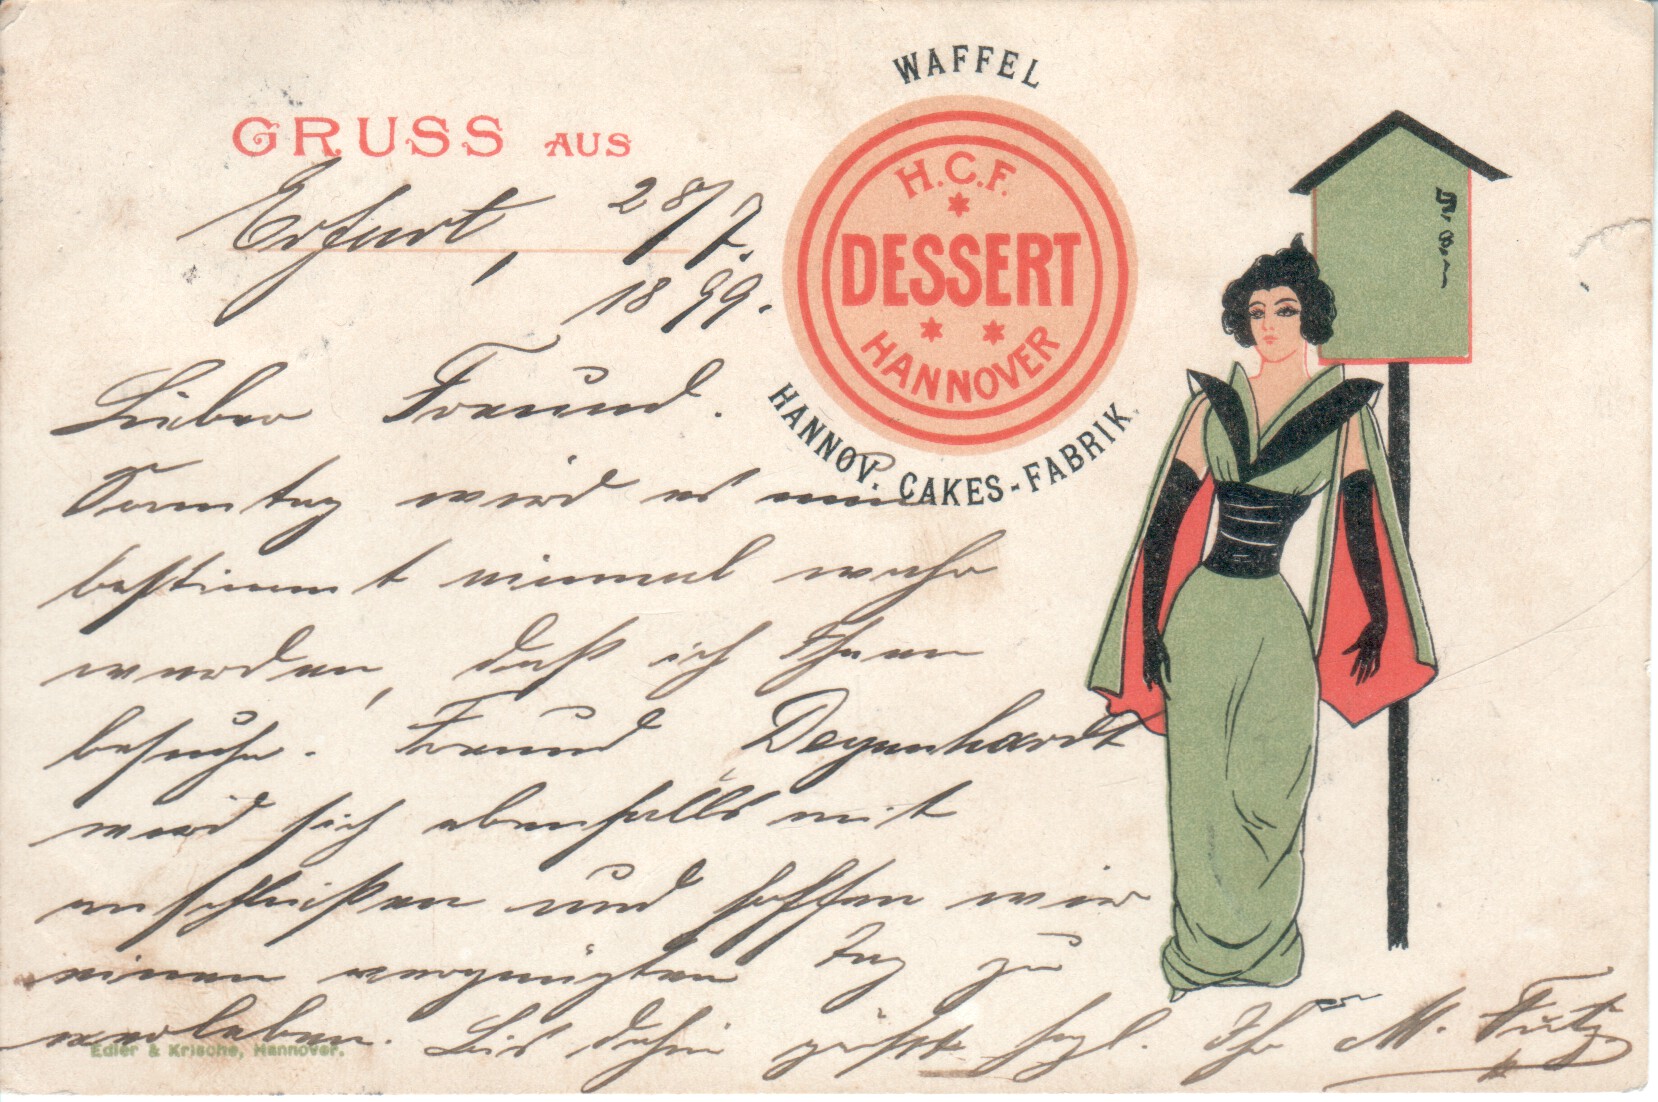 WAFFEL
GRUSS AUS
H.C.F.
DESSERT
HANNOVER
HANNOV. CAKES-FABRIK.
Erfurt, 28/7.
1899.
Lieber Freund.
Sonntag wird es nun
bestimmt einmal wahr
werden, daß ich Ihnen
besuche. Freund Degenhardt
wird sich ebenfalls mit
anschließen und hoffen wir
einen vergnügten Tag zu
verleben. Bis dahin grüßt hzl. Ihr M.
Edler & Krische, Hannover.